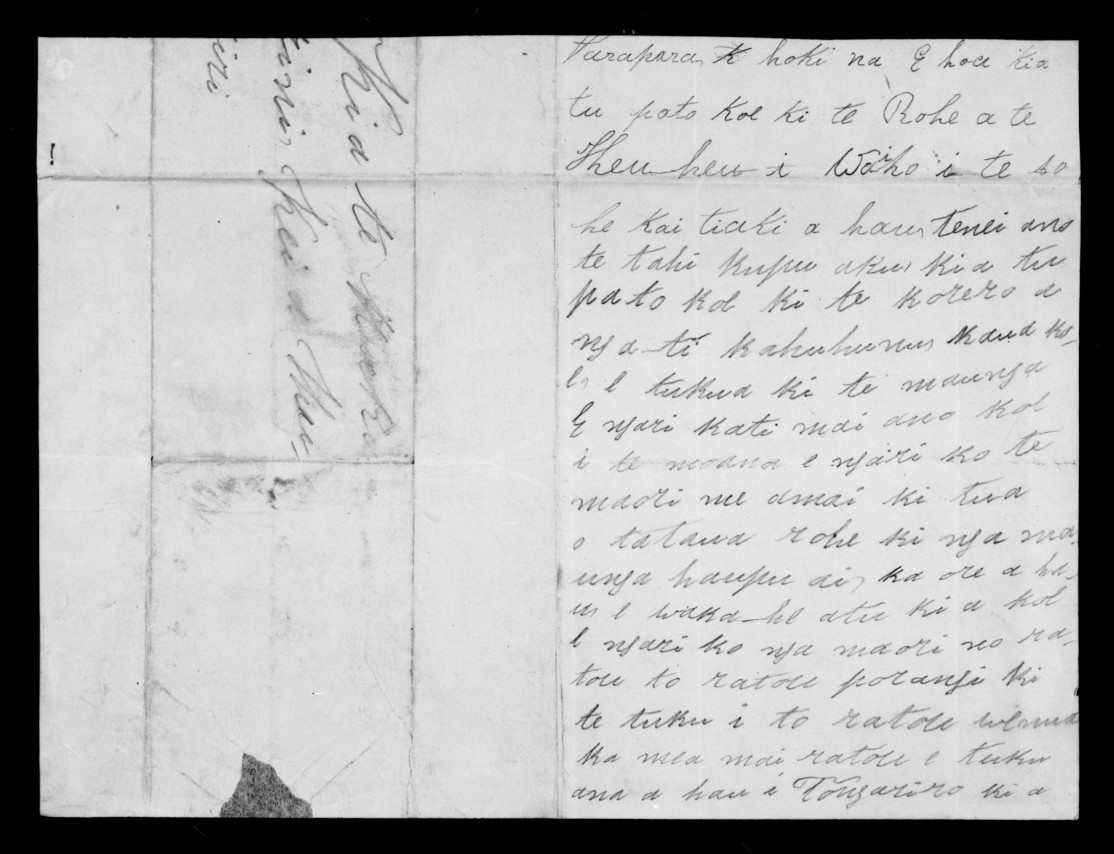 Parapara, hoki na E hoa kia
tu pato koe ki te Rohe a te
Heu-heu i Waiho i te 
he kai tiaki a hau, tenei ano
te tahi kupu aku, kia tu
pato koe ki te korero a
nga-ti kahuhunu, kaua ko-
e, e tukua ki te maunga
E ngari kati mai ano koe
i te moana e ngari ko te
maori me amai ki tua
o tataua rohe ki nga ma-
unga haupu ai, ka ore a ha-
u, e waka-he atu ki a koe
e ngari ko nga maori no ra-
tou to ratou porangi ki
te tuku i to ratou wenua
ka mea mai ratou e tuku
ana a hau i Tongariro ki a
Kia te
Kei a